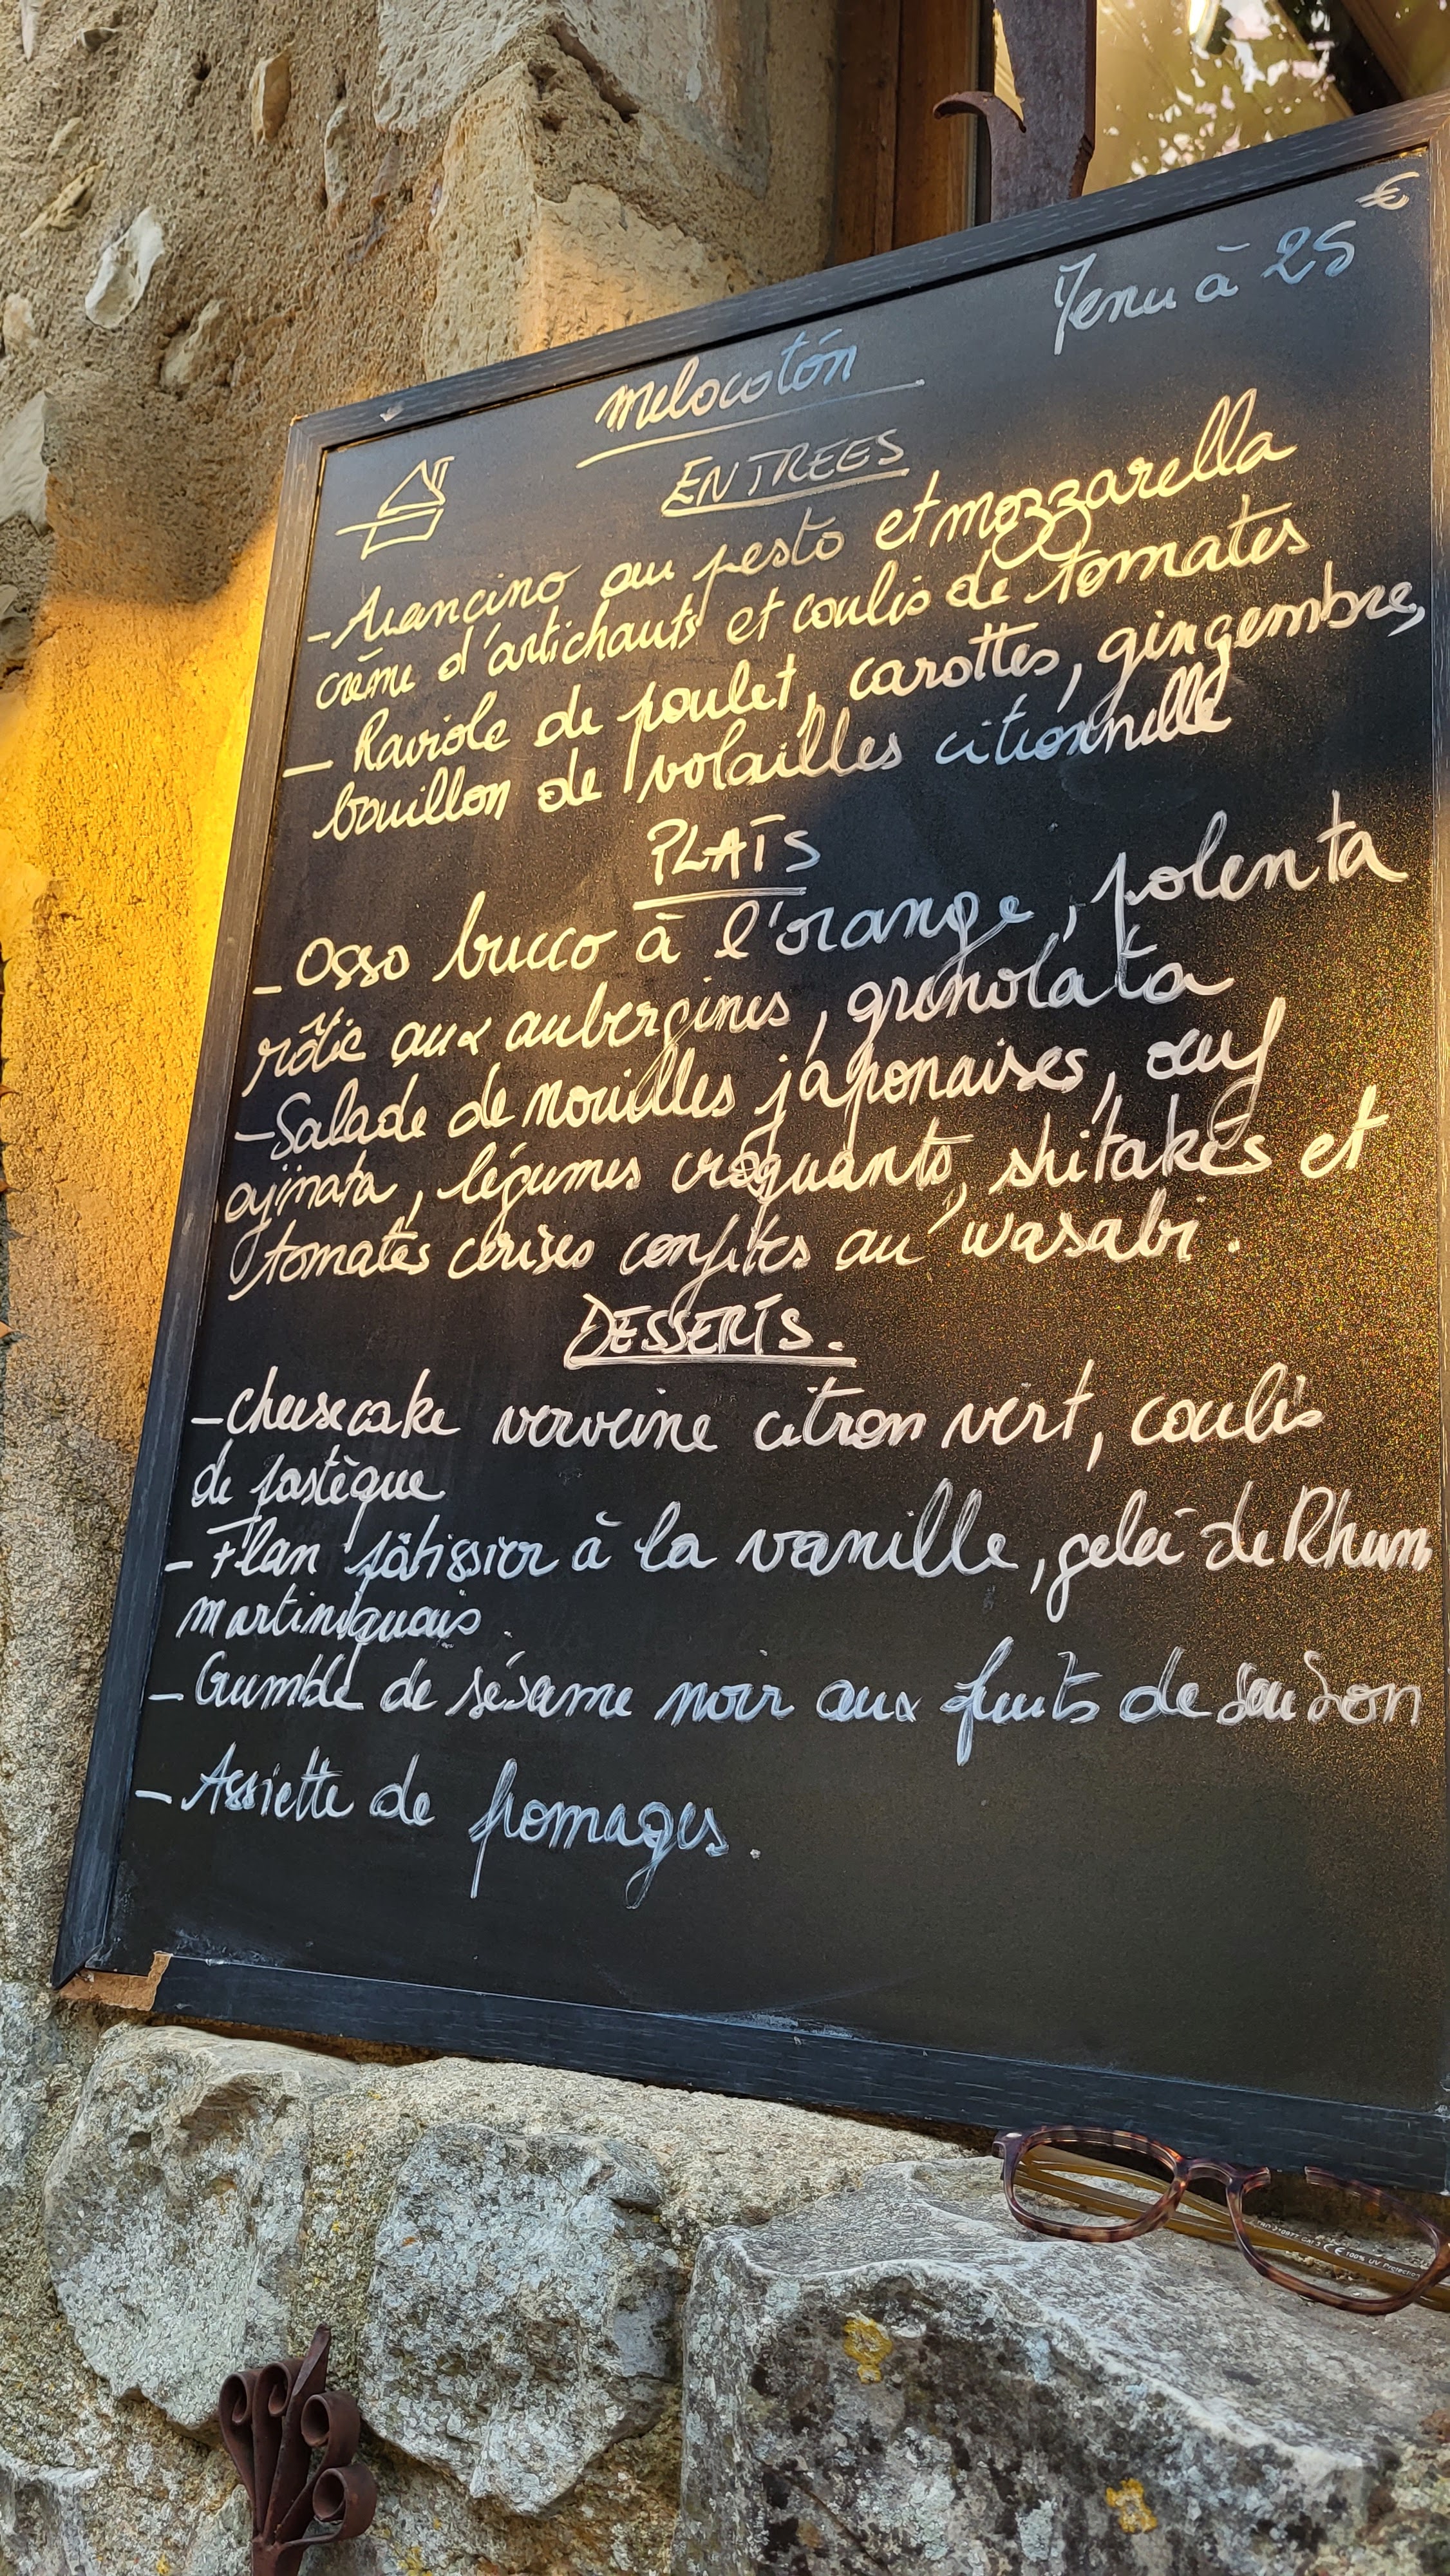 Menu à 25 €
Melocotón
ENTREES
- Arancino au pesto et mozzarella
crème d'artichauts et coulis de tomates
- Raviole de poulet, carottes, gingembre,
bouillon de volailles citronnelle
PLATS
- Osso bucco à l'orange, polenta
rôtie aux aubergines, gremolata
- Salade de nouilles japonaises, œuf
ajimata, légumes croquants, shitakés et
tomates cerises confites au wasabi.
DESSERTS.
- cheesecake verveine citron vert, coulis
de pastèque
- Flan pâtissier à la vanille, gelée de Rhum
martiniquais
- Crumble de sésame noir aux fruits de saison
- Assiette de fromages.
100% UV Protection